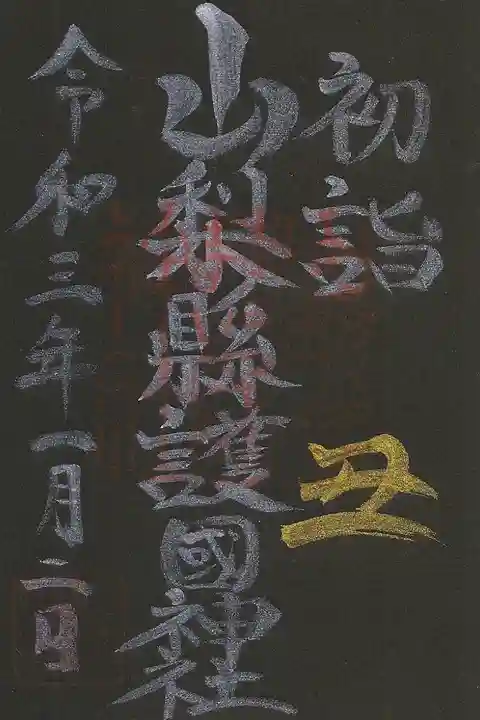 初詣 丑
山梨縣護國神社
令和三年一月二日